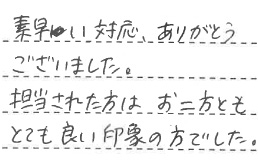 素早い対応、ありがとう
ございました。
担当された方は お二方とも
とても良い印象の方でした。